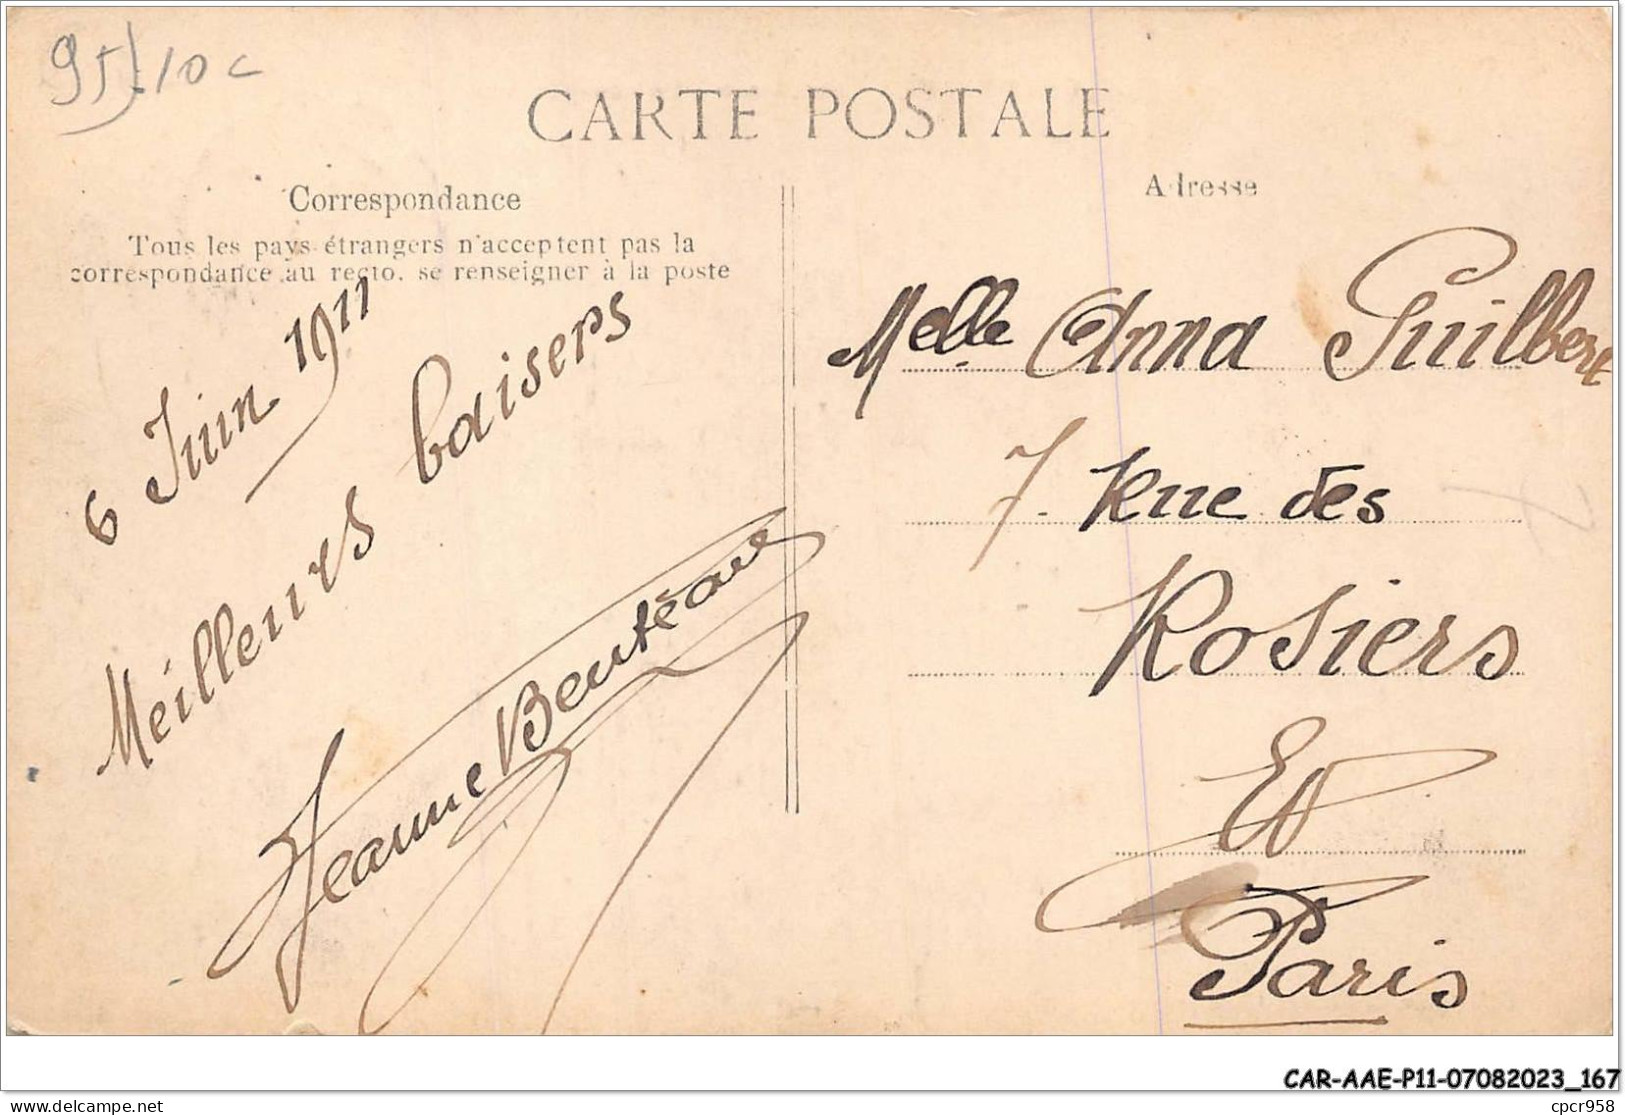 95) 10 c
CARTE POSTALE
Correspondance
Tous les pays étrangers n'acceptent pas la
correspondance au recto. se renseigner à la poste
6 Juin 1911
Meilleurs baisers
Jeanne
Adresse
Melle Anna Guilbert
7 Rue des
Rosiers
EV
Paris
CAR-AAE-P11-07082023_167
delcampe.net
cpcr958